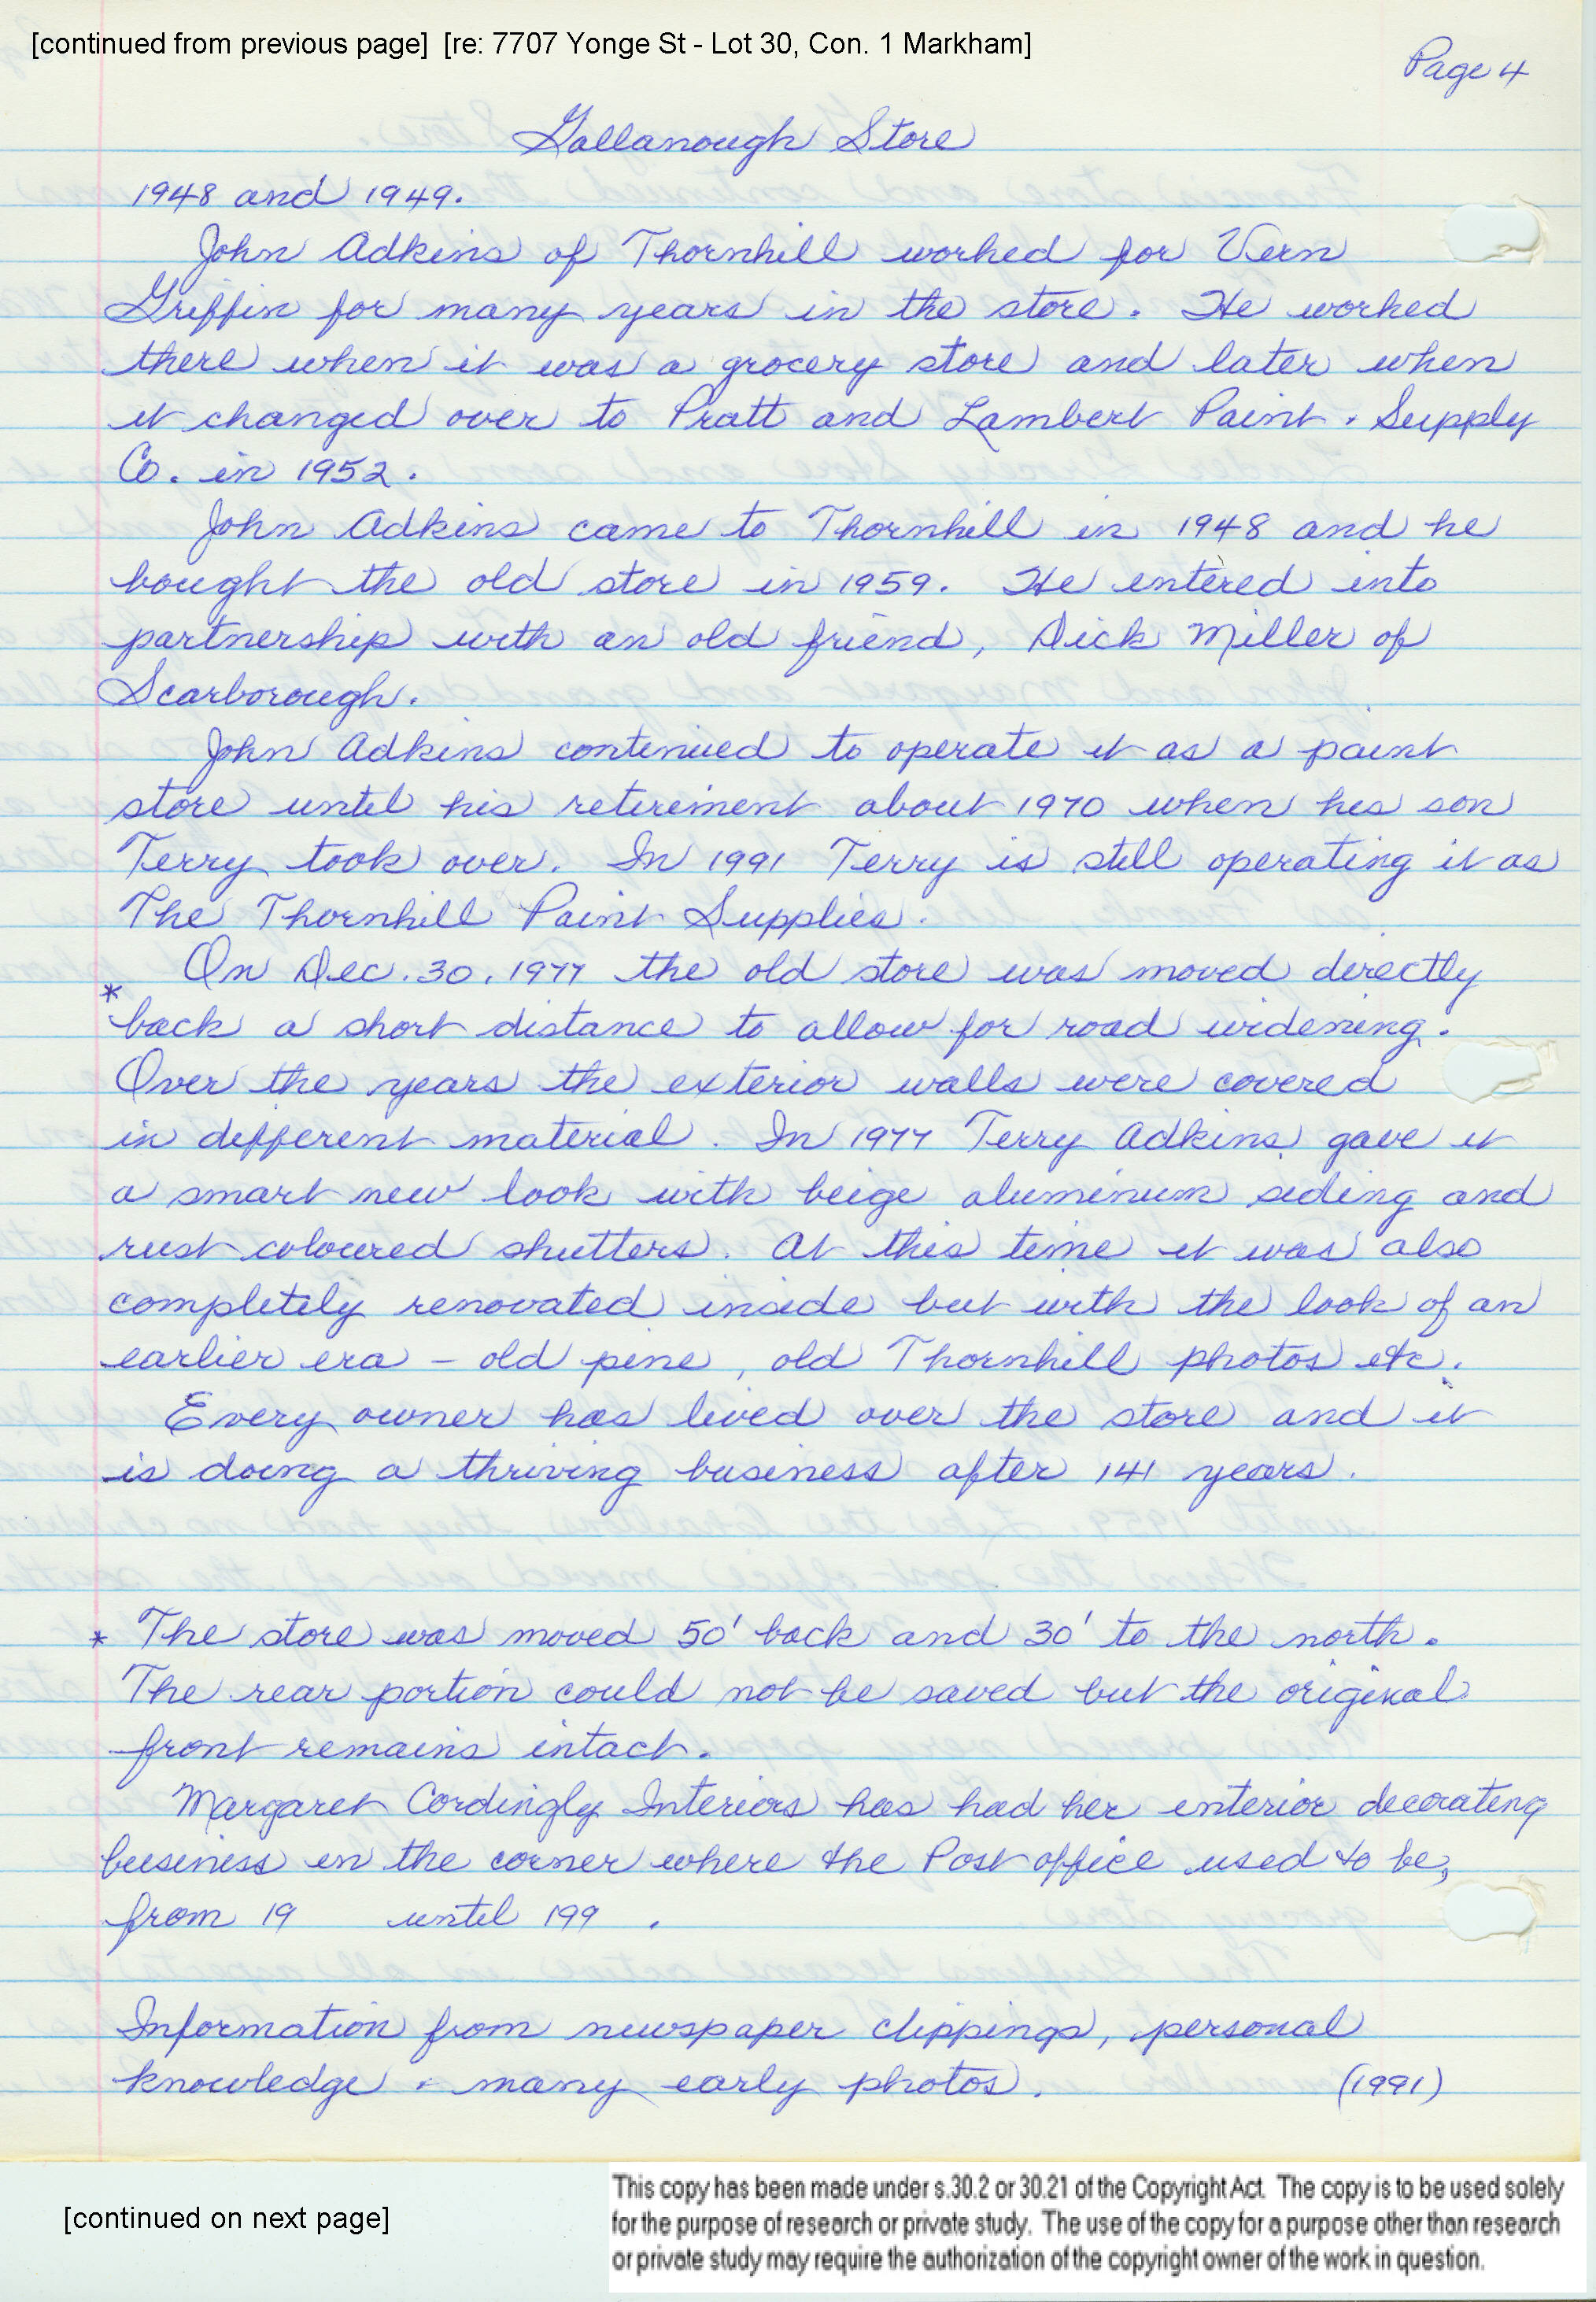 [continued from previous page] [re: 7707 Yonge St - Lot 30, Con. 1 Markham]
Page 4
Gallanough Store
1948 and 1949.
John Adkins of Thornhill worked for Vern
Griffin for many years in the store. He worked
there when it was a grocery store and later when
it changed over to Pratt and Lambert Paint + Supply
Co. in 1952.
John Adkins came to Thornhill in 1948 and he
bought the old store in 1959. He entered into
partnership with an old friend, Dick Miller of
Scarborough.
John Adkins continued to operate it as a paint
store until his retirement about 1970 when his son
Terry took over. In 1991 Terry is still operating it as
The Thornhill Paint Supplies.
On Dec. 30, 1977 the old store was moved directly
* back a short distance to allow for road widening.
Over the years the exterior walls were covered
in different material. In 1977 Terry Adkins gave it
a smart new look with beige aluminum siding and
rust coloured shutters. At this time it was also
completely renovated inside but with the look of an
earlier era - old pine, old Thornhill photos etc.
Every owner has lived over the store and it
is doing a thriving business after 141 years.
* The store was moved 50' back and 30' to the north.
The rear portion could not be saved but the original
front remains intact.
Margaret Cordingly Interiors has had her interior decorating
business in the corner where the Post office used to be,
from 19 until 199 .
Information from newspaper clippings, personal
knowledge + many early photos. (1991)
[continued on next page]
This copy has been made under s.30.2 or 30.21 of the Copyright Act. The copy is to be used solely
for the purpose of research or private study. The use of the copy for a purpose other than research
or private study may require the authorization of the copyright owner of the work in question.